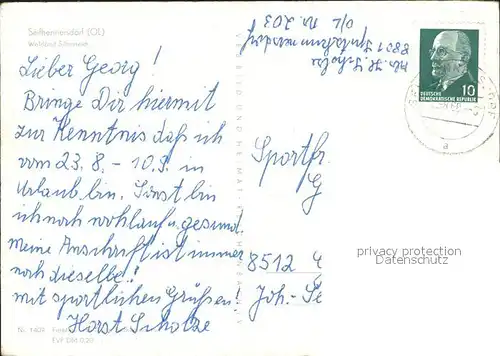 Seifhennersdorf (OL)
Waldbad Silberteich
Lieber Georg!
Bringe Dir hiermit
zur Kenntnis daß ich
vom 23.8. – 10.9. in
Urlaub bin. Sonst bin
ich noch wohlauf u. gesund.
Meine Anschrift ist immer
noch dieselbe!
mit sportlichen Grüßen!
Horst Scholze
EVP DM 0,20
BILD UND HEIMAT
Abs. H. Scholze
8801
O/L Nr. 203
10
DEUTSCHE
DEMOKRATISCHE REPUBLIK
a
Sportfr.
G
8512
Joh.-Se
privacy protection
Datenschutz